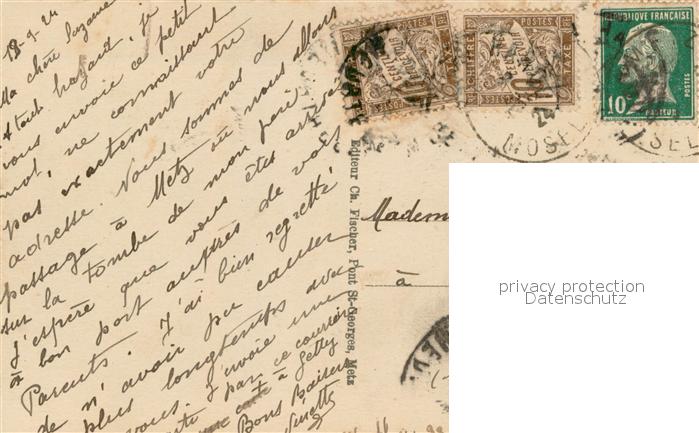 18-9-24
Ma chère
à tout hazard, je
vous envoie ce petit
mot, ne connaissant
pas exactement votre
adresse. Nous sommes de
passage à Metz où nous allons
sur la tombe de mon père
J'espère que vous êtes arrivée
à bon port auprès de vos
Parents. J'ai bien regretté
de n'avoir pu causer
plus longtemps avec
vous. J'envoie une
carte par ce courrier
à Getty
Bons Baisers
Ninette
Editeur Ch. Fischer, Pont St-Georges, Metz
CHIFFRE TAXE
POSTES
10
CHIFFRE TAXE
POSTES
10
REPUBLIQUE FRANÇAISE
10c
POSTES
PASTEUR
MOSEL
24
SEL
Madem
à
privacy protection
Datenschutz